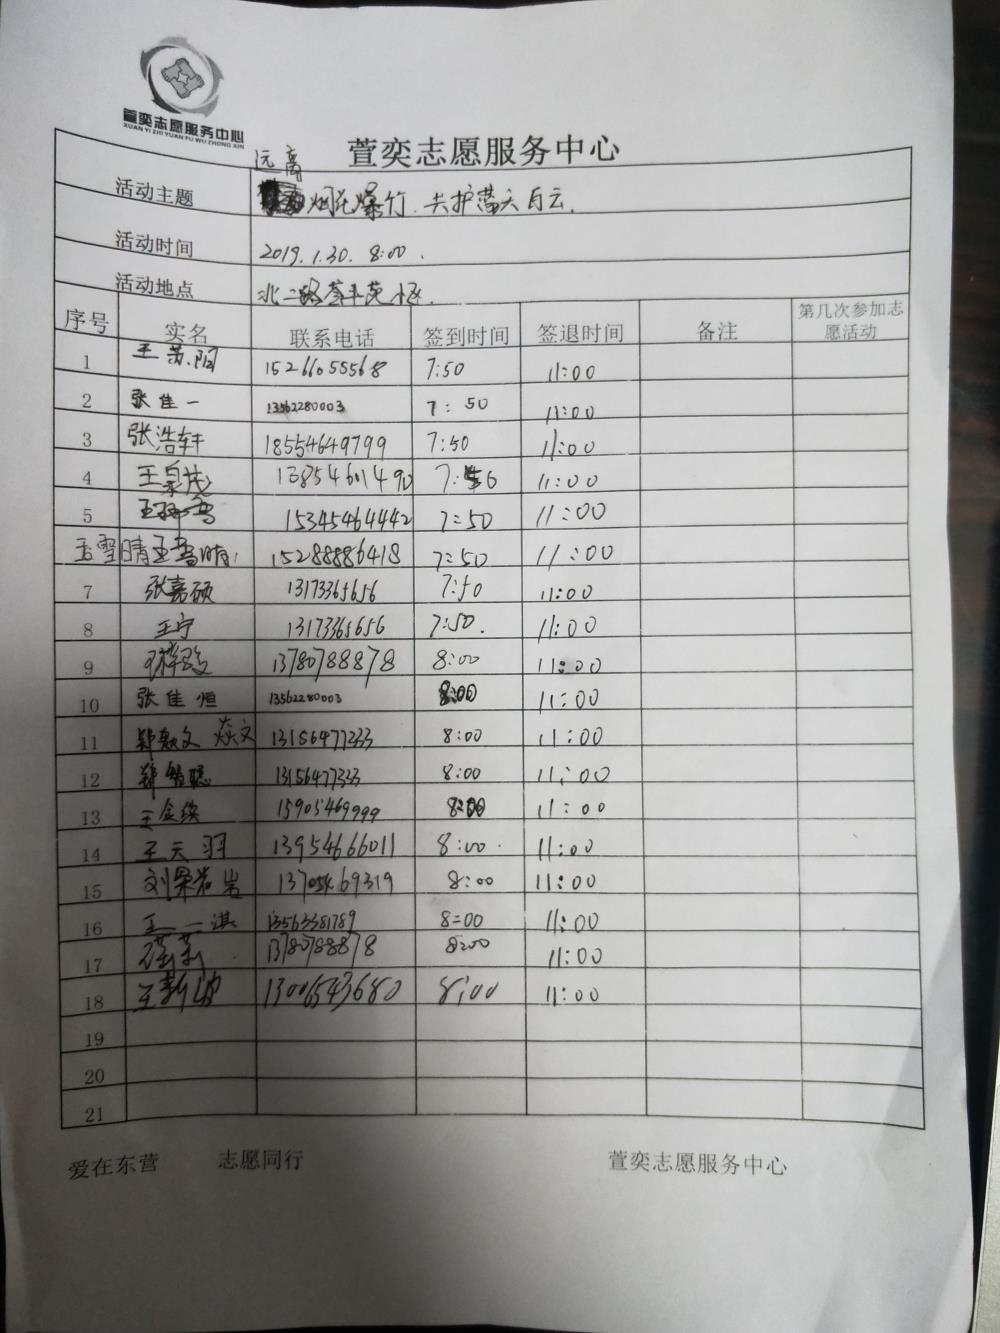 萱奕志愿服务中心
XUAN YI ZHI YUAN FU WU ZHONG XIN
萱奕志愿服务中心
远离
活动主题 烟花爆竹.共护蓝天白云.
活动时间 2019.1.30. 8:00.
活动地点 北二路
序号 实名 联系电话 签到时间 签退时间 备注 第几次参加志愿活动
1 王 阳 15266055568 7:50 11:00
2 张佳一 13562280003 7:50 11:00
3 张浩轩 18554649799 7:50 11:00
4 王泉茂 13854601490 7:50 11:00
5 15345464442 7:50 11:00
王雪晴 王雪晴 15288886418 7:50 11:00
7 张嘉硕 13173365656 7:50 11:00
8 王宁 13173365656 7:50. 11:00
9 13780788878 8:00 11:00
10 张佳恒 13562280003 8:00 11:00
11 郑焱文 焱文 13156477333 8:00 11:00
12 郑 聪 13156477333 8:00 11:00
13 王金 15905469999 8:00 11:00
14 王天羽 13954666011 8:00. 11:00
15 刘 岩 13705469319 8:00 11:00
16 王一淇 13563381789 8:00 11:00
17 13780788878 8:00 11:00
18 王新 13006543680 8:00 11:00
19
20
21
爱在东营 志愿同行 萱奕志愿服务中心